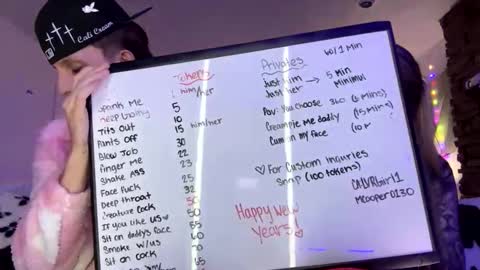 Cali Crown
Tokens
him/her
Spank Me 5
Keep Going 10
Tits Out 15 him/her
Pants off 30
Blow Job 22
Finger me 23
Shake Ass 25
Face fuck 32
Deep throat 50
Creature Cock 50
If you like us ♡ 55
Sit on daddy's face 60
Smoke w/us
Sit on cock
Privates w/1 Min
Just him → 5 Min
Just her Minimui
Pov: You choose 360 (6 Mins)
Creampie Me daddy (15 Mins)
Cum on my face
♡ For Custom Inquries
Snap (100 tokens)
mcooper0130
Happy New
Years!